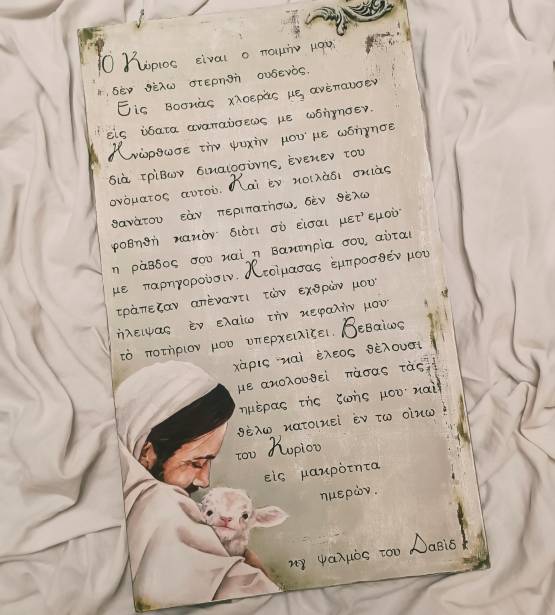 Ο Κύριος είναι ο ποιμήν μου,
δέν θέλω στερηθή ουδενός.
Εἰς βοσκὰς χλοερὰς με ἀνέπαυσεν
εἰς ὕδατα αναπαύσεως με ωδήγησεν.
Ηνώρθωσε τὴν ψυχήν μου· με ωδήγησε
διὰ τρίβων δικαιοσύνης, ένεκεν του
ονόματος αυτού. Καὶ ἐν κοιλάδι σκιὰς
θανάτου εὰν περιπατήσω, δὲν θέλω
φοβηθή κακόν· διότι σὺ είσαι μετ' εμού·
η ράβδος σου καὶ η βακτηρία σου, αύται
με παρηγορούσιν. Ητοίμασας έμπροσθέν μου
τράπεζαν απέναντι τών εχθρών μου·
ήλειψας έν ελαίω τὴν κεφαλήν μου·
τὸ ποτήριον μου υπερχειλίζει. Βεβαίως
χάρις καὶ έλεος θέλουσι
με ακολουθεί πάσας τὰς
ημέρας τής ζωής μου· καὶ
θέλω κατοικεί ἐν τω οίκω
του Κυρίου
εἰς μακρότητα
ημερών.
κγ ψαλμὸς του Δαβὶδ